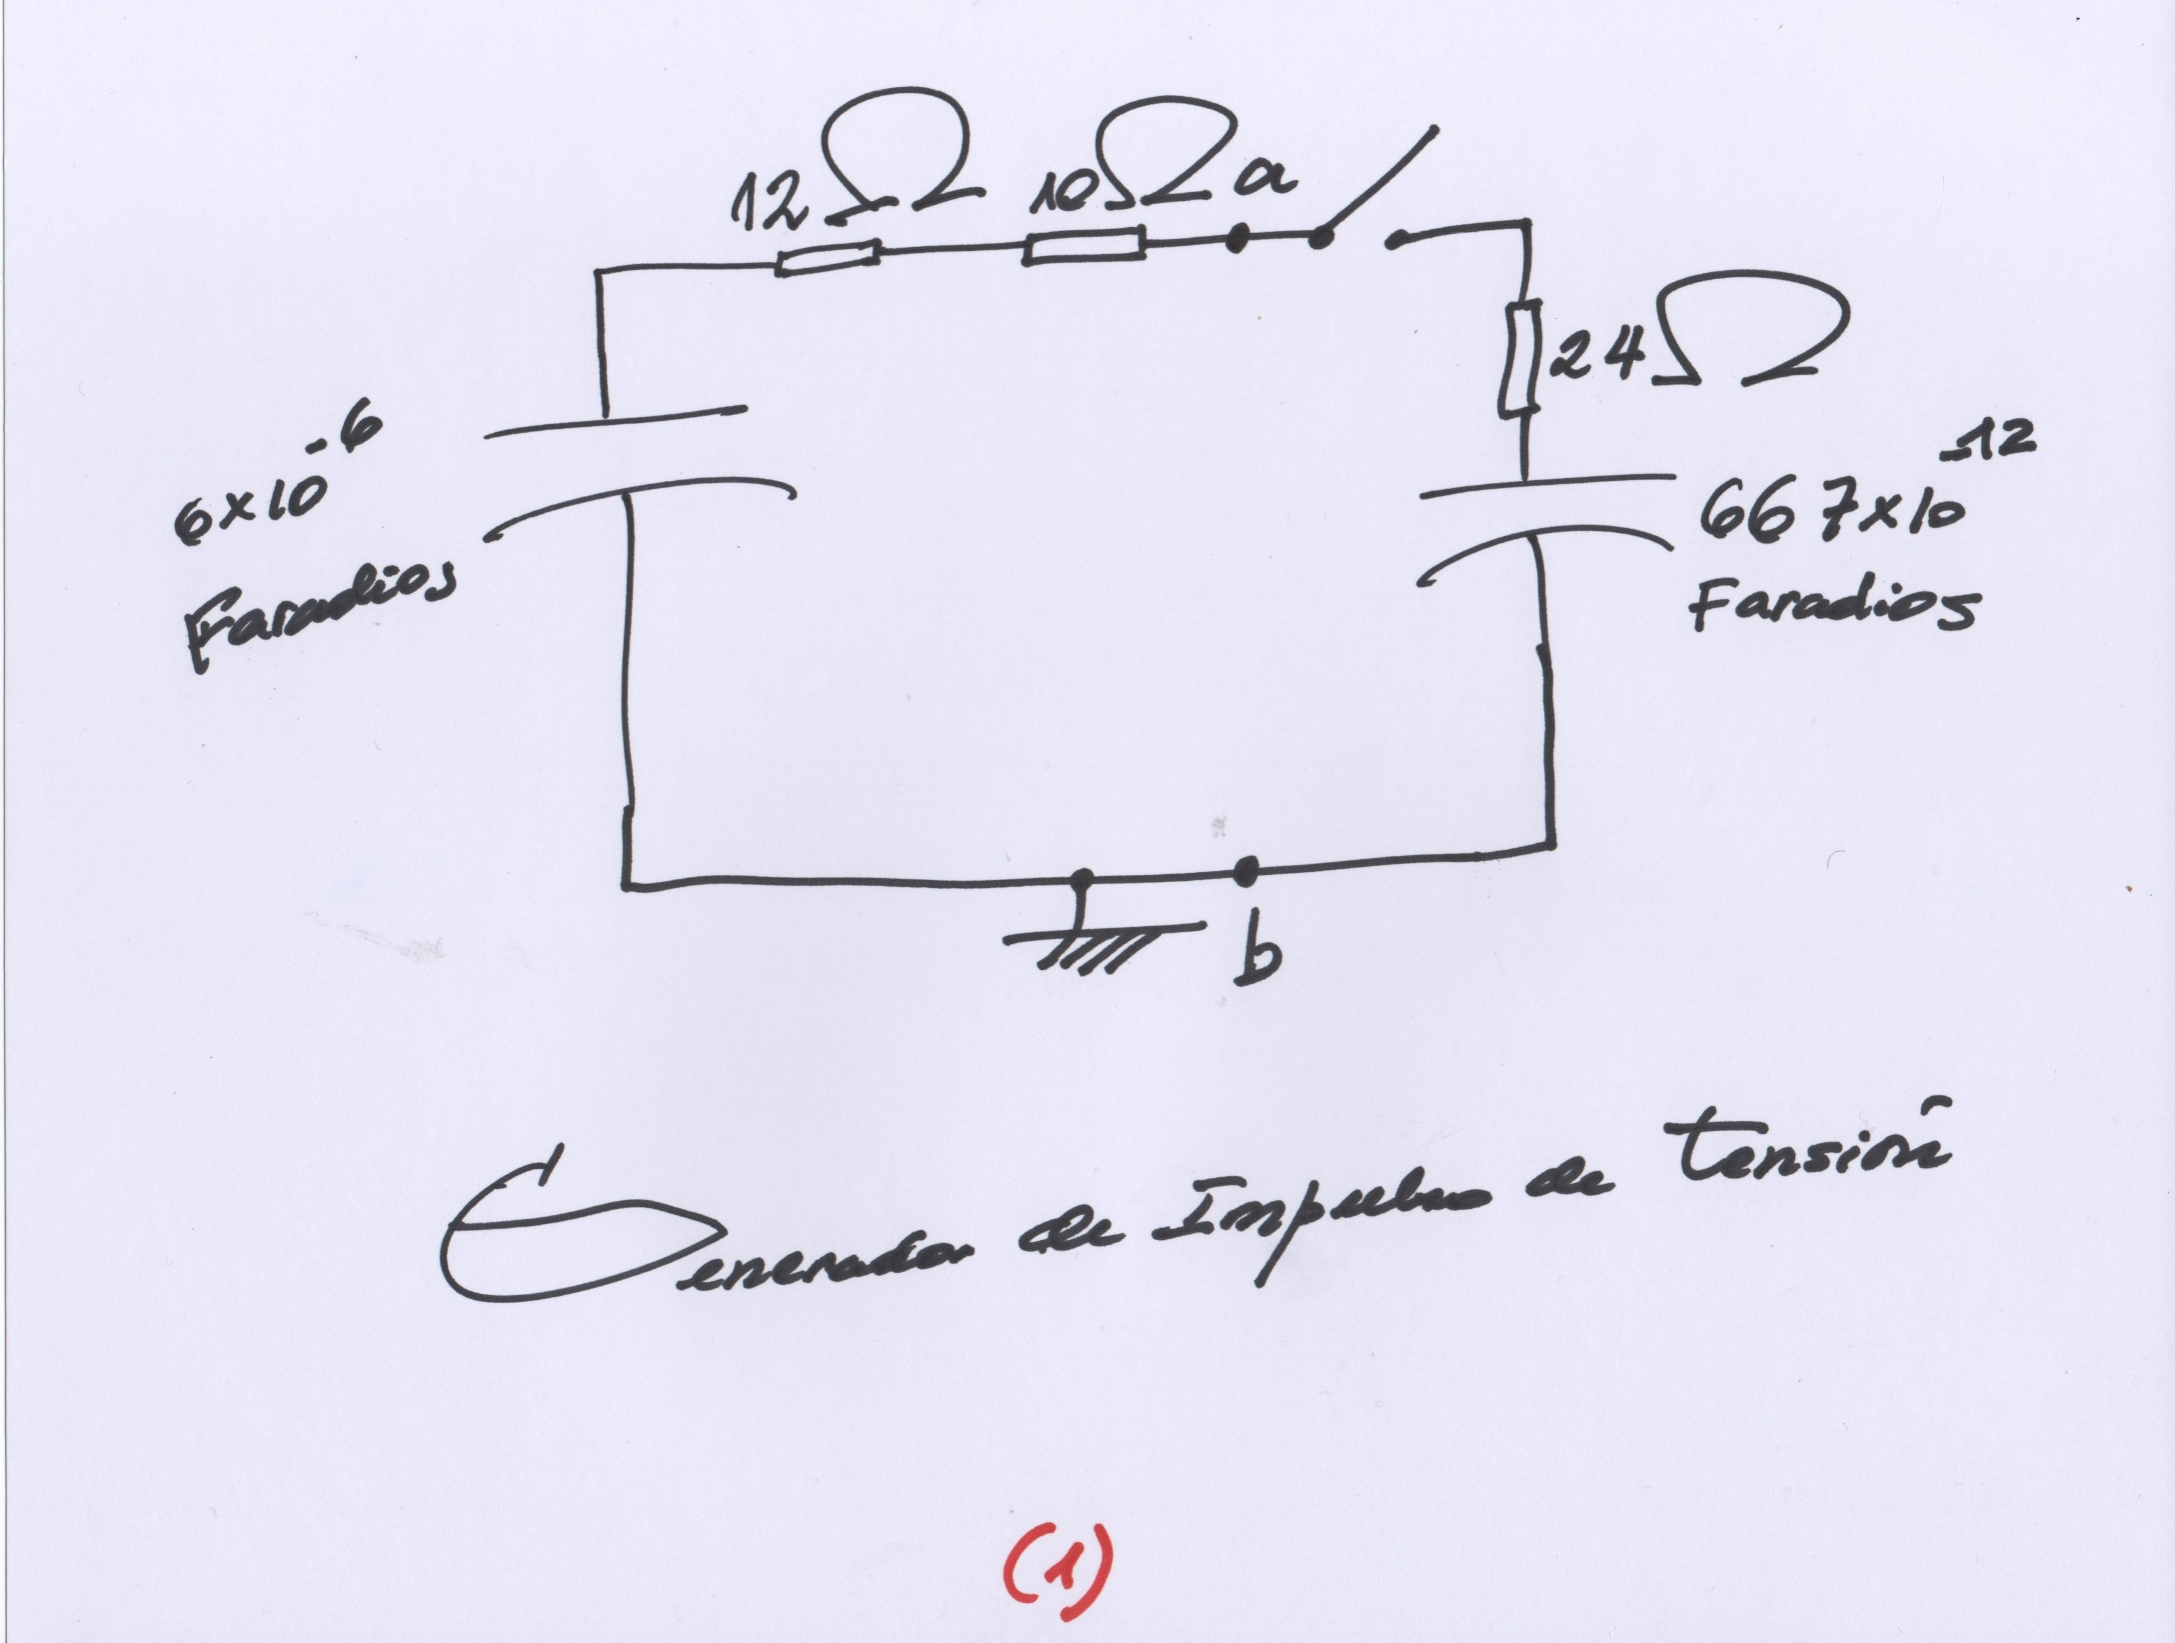 12Ω 10Ω a
24Ω
6x10⁻⁶
Faradios
667x10⁻¹²
Faradios
b
Generador de Impulso de tensión
(1)